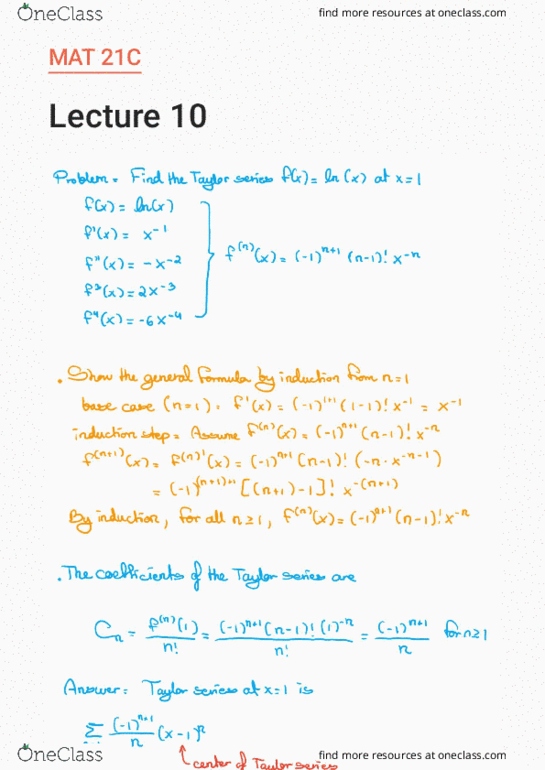 OneClass
find more resources at oneclass.com
MAT 21C
Lecture 10
Problem = Find the Taylor series f(x) = ln(x) at x=1
f(x) = ln(x)
f'(x) = x^-1
f"(x) = -x^-2
f³(x) = 2x^-3
f⁴(x) = -6x^-4
f^(n)(x) = (-1)^n+1 (n-1)! x^-n
. Show the general formula by induction from n=1
base case (n=1) = f'(x) = (-1)^1+1 (1-1)! x^-1 = x^-1
induction step = Assume f^(n)(x) = (-1)^n+1 (n-1)! x^-n
f^(n+1)(x) = f^(n)'(x) = (-1)^n+1 (n-1)! (-n · x^-n-1)
= (-1)^(n+1)+1 [(n+1)-1]! x^-(n+1)
By induction, for all n≥1, f^(n)(x) = (-1)^n+1 (n-1)! x^-n
. The coefficients of the Taylor series are
Cn = f^(n)(1)/n! = (-1)^n+1 (n-1)! (1)^-n / n! = (-1)^n+1 / n for n≥1
Answer = Taylor series at x=1 is
Σ (-1)^n+1 / n (x-1)^n
center of Taylor series
OneClass
find more resources at oneclass.com